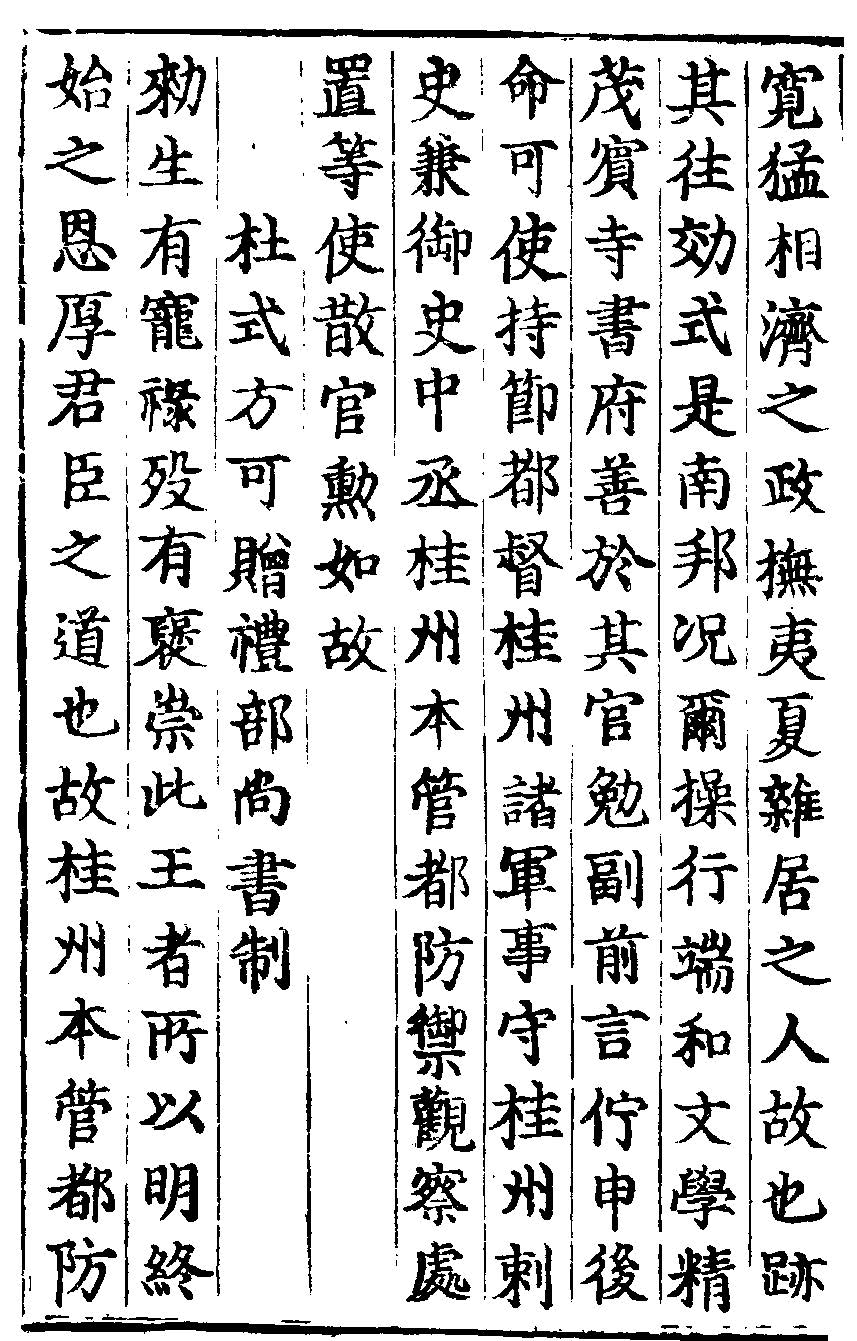 寛猛相濟之政撫夷夏雜居之人故也跡
其往効式是南邦况爾操行端和文學精
茂賓寺書府善於其官勉副前言佇申後
命可使持節都督桂州諸軍事守桂州刺
史兼御史中丞桂州本管都防禦觀察處
置等使散官勲如故
杜式方可贈禮部尚書制
勑生有寵祿殁有襃崇此王者所以明終
始之恩厚君臣之道也故桂州本管都防